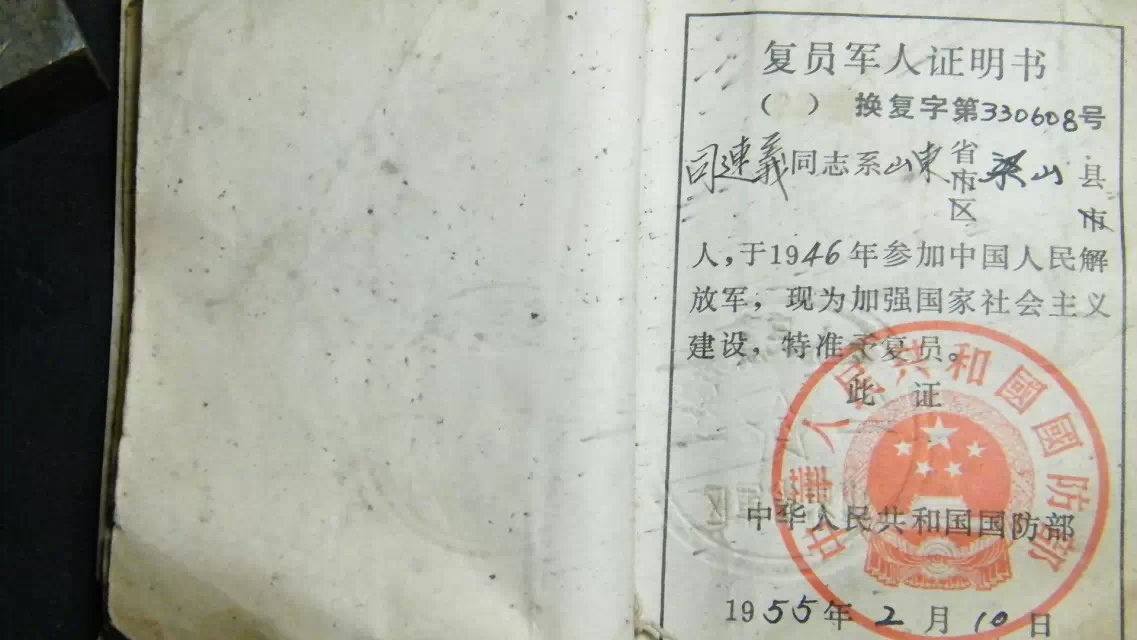 复员军人证明书
（ ） 换复字第330608号
司連義同志系山東省市区梁山县市
人，于1946年参加中国人民解
放军，现为加强国家社会主义
建设，特准予复员。
此 证
中华人民共和国国防部
1955年2月10日
中華人民共和國國防部